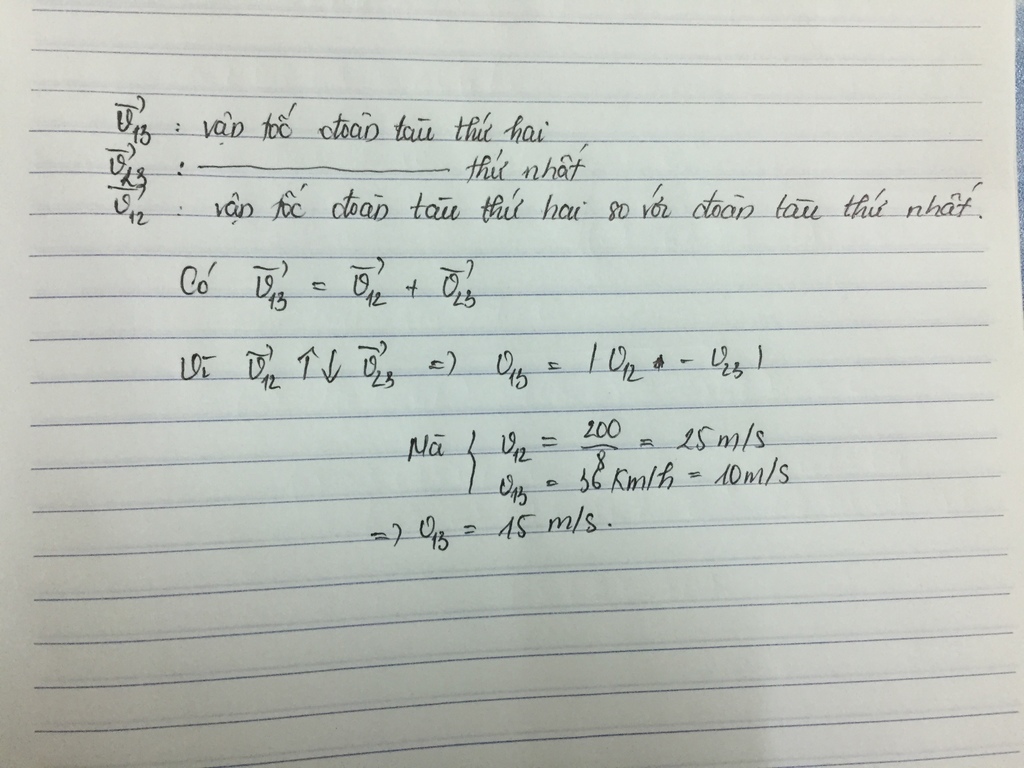 v⃗₁₃ : vận tốc đoàn tàu thứ hai
v⃗₂₃ : ———— thứ nhất
v⃗₁₂ : vận tốc đoàn tàu thứ hai so với đoàn tàu thứ nhất.
Có v⃗₁₃ = v⃗₁₂ + v⃗₂₃
Vì v⃗₁₂ ↑↓ v⃗₂₃ => v₁₃ = | v₁₂ - v₂₃ |
Mà { v₁₂ = 200/8 = 25 m/s
v₁₃ = 36 km/h = 10 m/s
=> v₁₃ = 15 m/s.